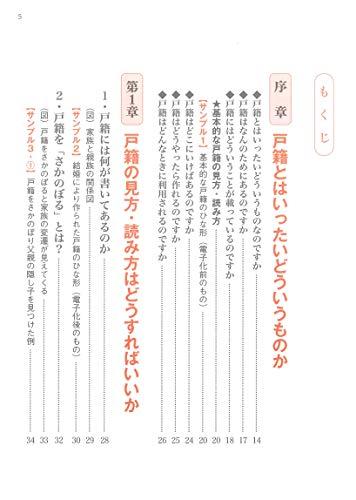 もくじ
序章 戸籍とはいったいどういうものか
◆戸籍とはいったいどういうものなのですか 14
◆戸籍はなんのためにあるのですか 17
◆戸籍にはどういうことが載っているのですか 18
★基本的な戸籍の見方・読み方 20
【サンプル1】基本的な戸籍のひな形（電子化前のもの） 20
◆戸籍はどこにいけばあるのですか 24
◆戸籍はどうやったら作れるのですか 25
◆戸籍はどんなときに利用されるのですか 26
第1章 戸籍の見方・読み方はどうすればいいか
1・戸籍には何が書いてあるのか 28
（図）家族と親族の関係図 29
【サンプル2】結婚により作られた戸籍のひな形（電子化後のもの） 30
2・戸籍を「さかのぼる」とは？ 32
（図）戸籍をさかのぼると家族の変遷が見えてくる 33
【サンプル3-①】戸籍をさかのぼり父親の隠し子を見つけた例 34
5